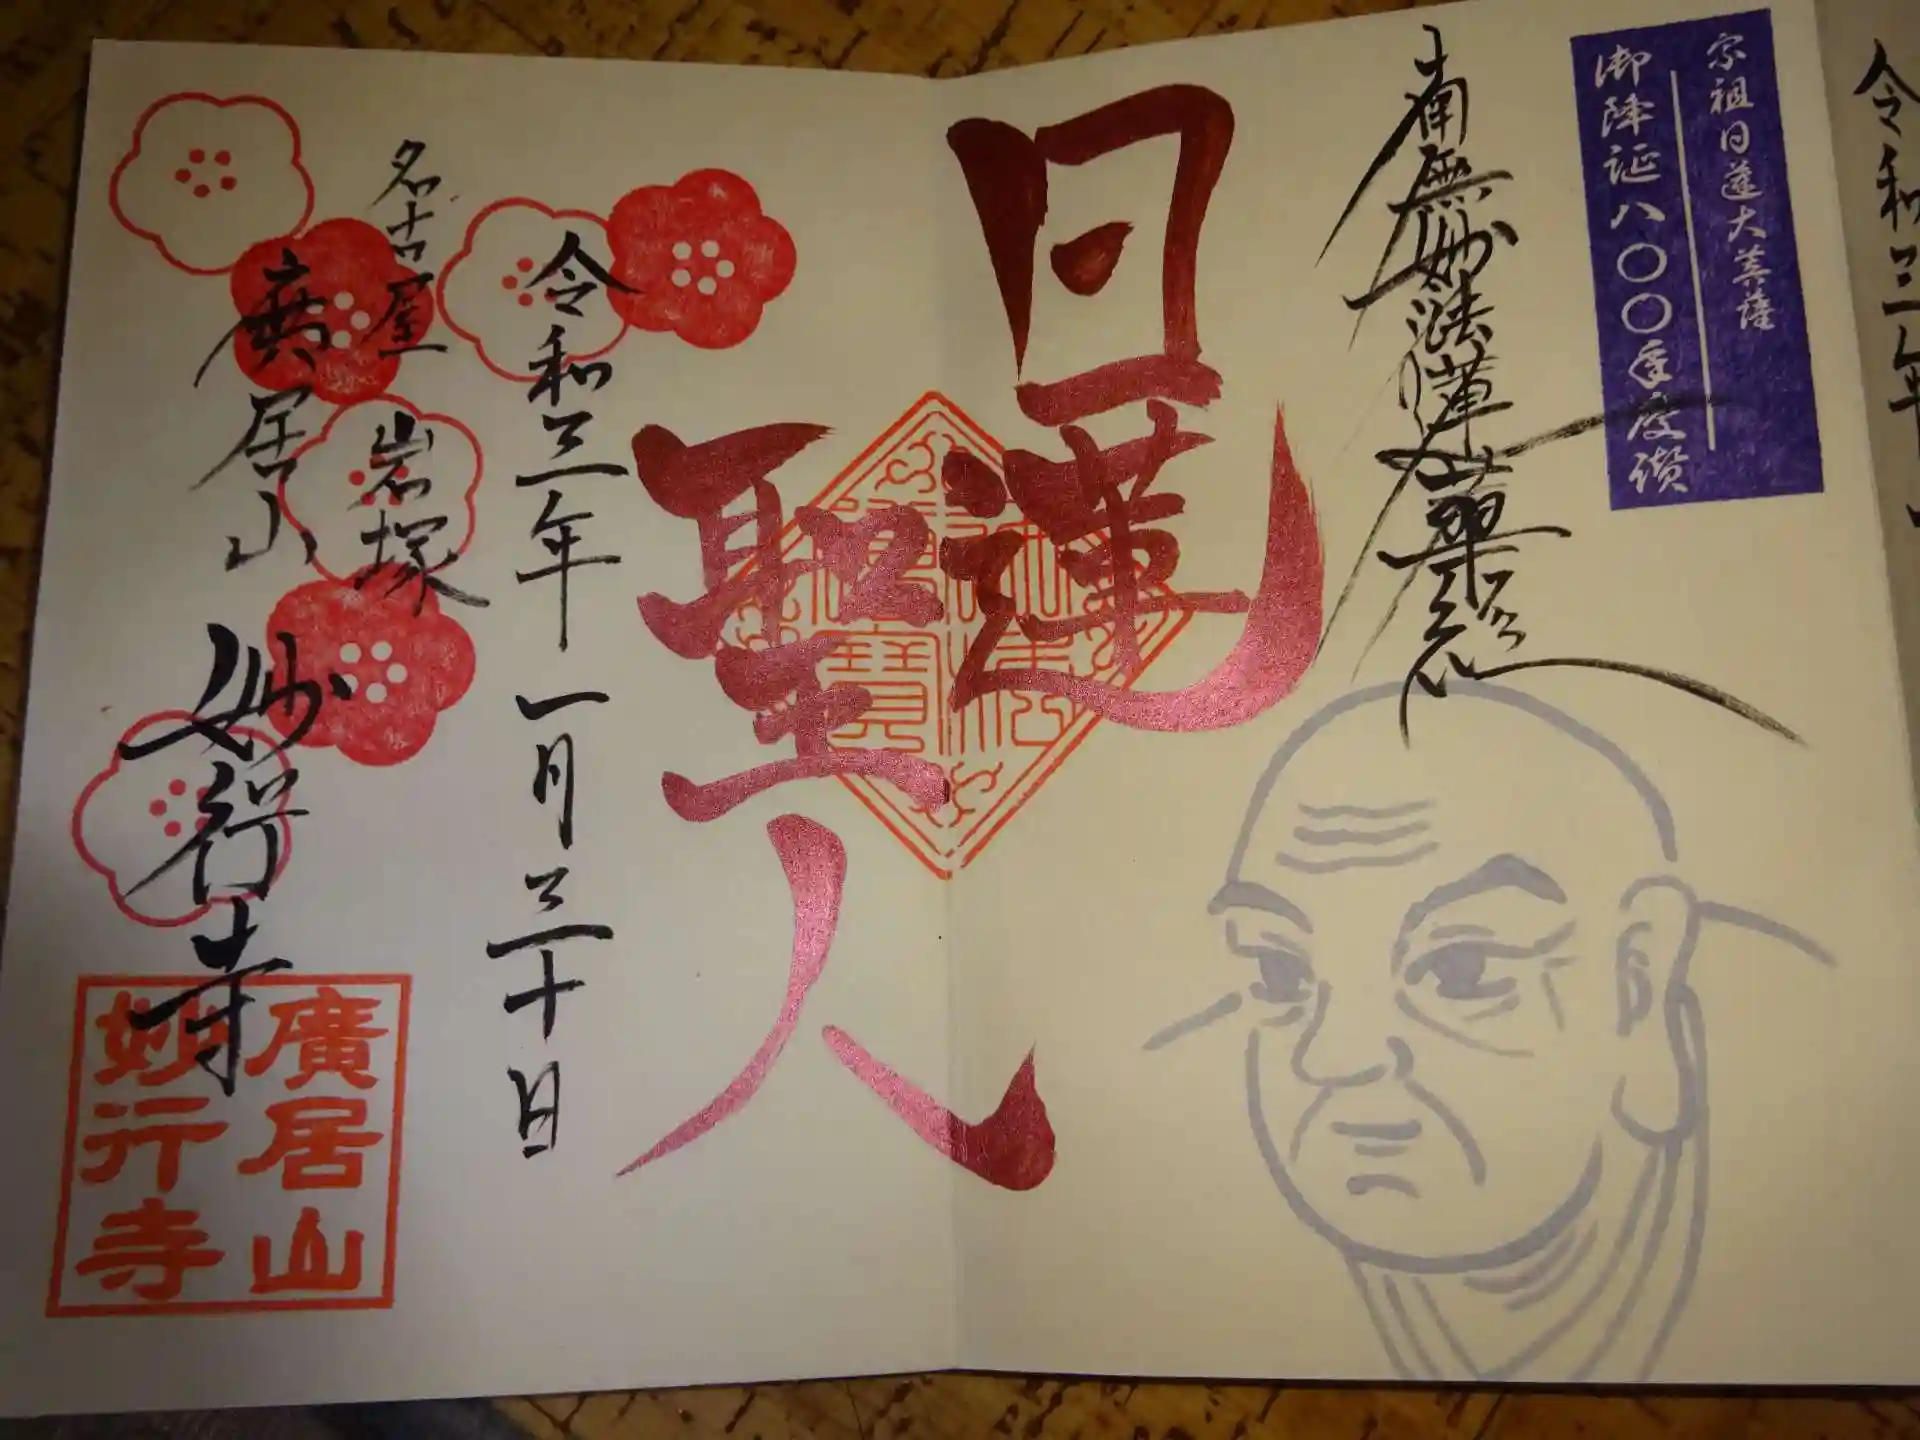 令和三年
宗祖日蓮大菩薩
御降誕八〇〇年度讃
南無妙法蓮華経
日蓮
聖人
令和三年一月三十日
名古屋岩塚
廣居山妙行寺
廣居山
妙行寺